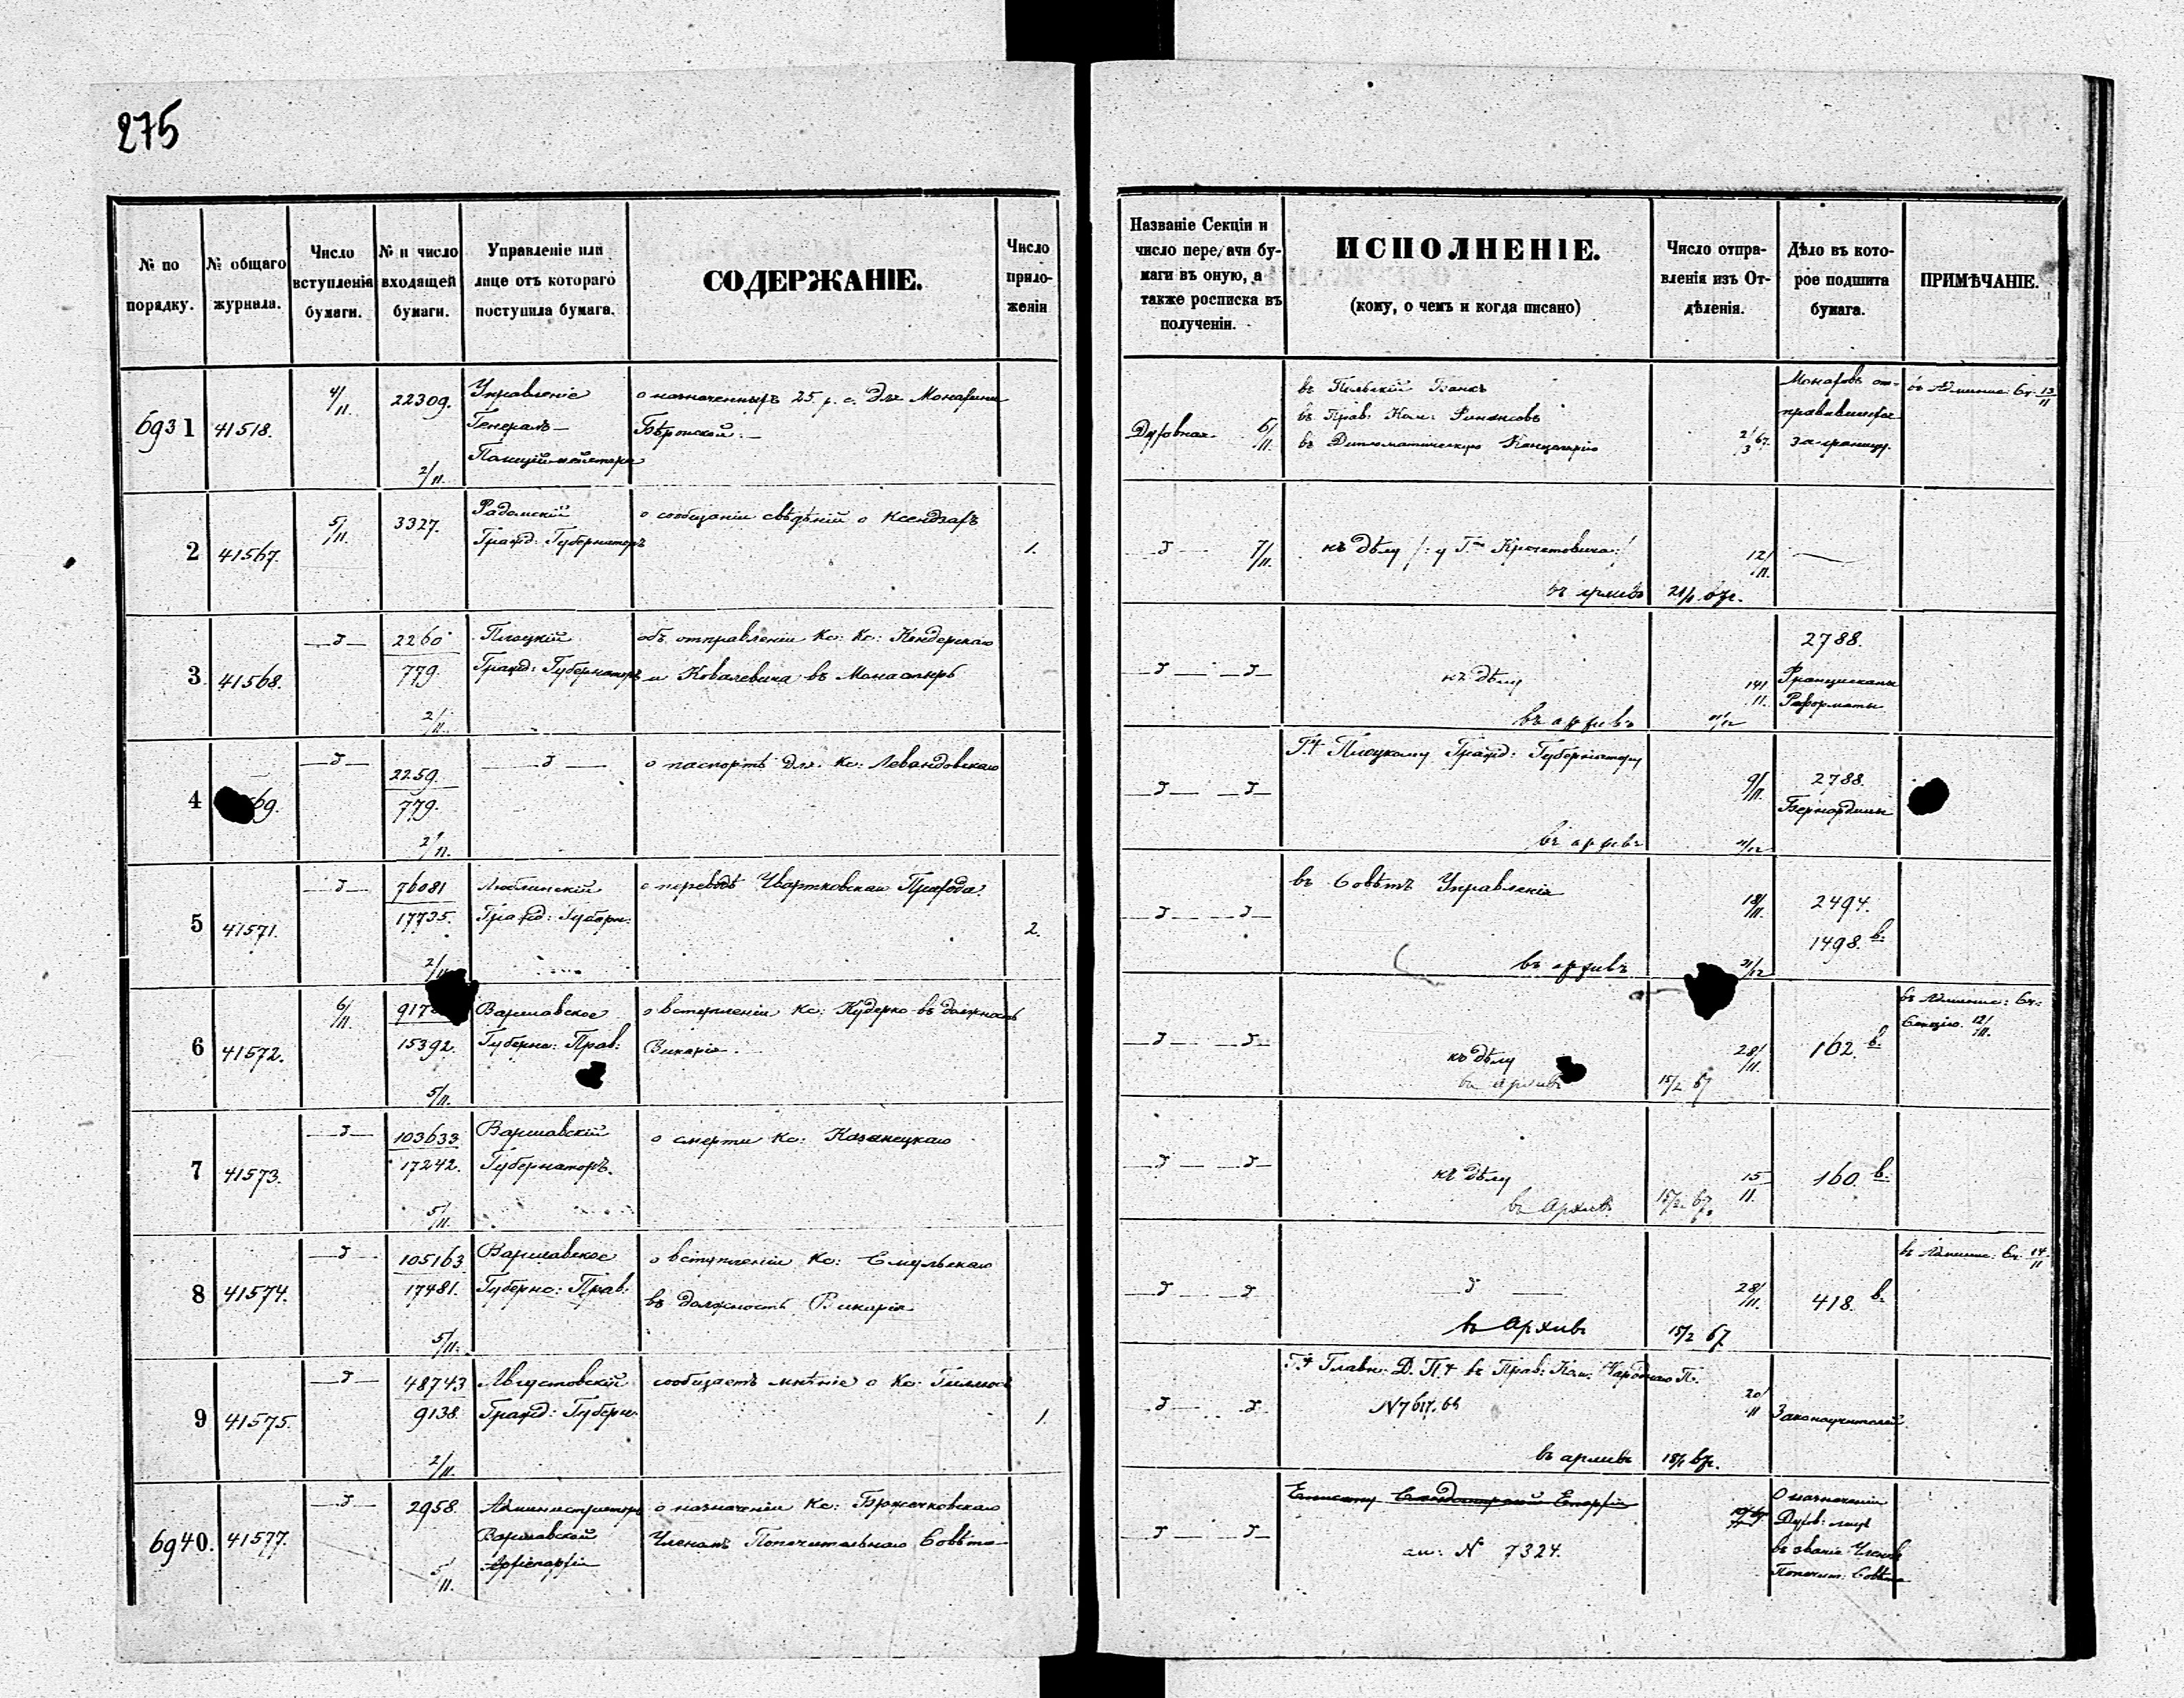 275
№ по порядку.
№ общаго журнала.
Число вступленія бумаги.
№ и число входящей бумаги.
Управленіе или лице отъ котораго поступила бумага.
СОДЕРЖАНІЕ.
Число прило-женій
6931
41518.
4/11.
22309.
2/11.
Управленіе
Генералъ-
Полиціймейстера
о назначенныхъ 25 р. с. для Монахини
2
41567.
5/11.
3327.
Радомскій
Гражд: Губернаторъ
о сообщеніи свѣдѣній о Ксендзахъ
1.
3.
41568.
2260
779.
2/11.
Плоцкій
Гражд: Губернаторъ
объ отправленіи Кс: Кс: Кендерскаго
и Ковалевича въ Монастырь
4
69.
2259.
779.
2/11.
о паспортѣ для Кс: Левандовскаго
5
41571.
76081
17735.
2/11
Люблинскій
Гражд: Губерн:
о переводѣ Чвартковскаго Прихода.
2.
6
41572.
6/11.
917
15392.
5/11.
Варшавское
Губернс: Прав:
о вступленіи Кс: Кудерко въ должность
Викарія.
7
41573.
103633
17242.
5/11.
Варшавскій
Губернаторъ.
о смерти Кс: Казанецкаго
8
41574.
105163
17481.
5/11.
Варшавское
Губернс: Прав:
о вступленіи Кс: Смульскаго
въ должность Викарія
9
41575.
48743
9138.
2/11.
Августовскій
Гражд: Губерн.
сообщаетъ мнѣніе о Кс:
1.
6940.
41577.
2958.
5/11.
Администраторъ
Варшавской
Архіепархіи
о назначеніи Кс: Бржечковскаго
Членомъ Попечительнаго Совѣта
Названіе Секціи и число передачи бу-маги въ оную, а также росписка въ полученіи.
ИСПОЛНЕНІЕ.
(кому, о чемъ и когда писано)
Число отпра-вленія изъ От-дѣленія.
Дѣло въ кото-рое подшита бумага.
ПРИМѢЧАНІЕ.
Духовная
6/11.
въ Польскій Банкъ
въ Прав: Ком: Финансовъ
въ Дипломатическую Канцелярію
2/3 67.
Монаховъ от-
правившихся
за-границу.
въ Админис: Сч: 13/11
7/11.
къ дѣлу /: у Г-на Кречетовича:/
12/11.
въ архивъ
къ дѣлу
14/11.
въ архивъ
31/12
2788.
Францисканы
Реформаты
Г.ну Плоцкому Гражд: Губернатору
9/11.
въ архивъ
31/12
2788.
Бернардины
въ Совѣтъ Управленія
18/11.
въ архивъ
31/12
2494.
1498. в.
къ дѣлу
28/11.
въ Архивъ
15/2 67
162. в.
въ Админис: Сч:
Секцію. 12/11.
къ дѣлу
15/11.
въ Архивъ
15/2 67.
160. в.
28/11.
въ Архивъ
15/2 67
418. в.
въ Админис: Сч: 14/11
Г.ну Главн: Д. П.ну въ Прав: Ком: Народнаго П.
N 7617.66
20/11
въ архивъ
18/1 67г.
Законоучителей
Епископу Сандомирской Епархіи
см: N 7324.
О назначеніи
Духов: лицъ
въ званіе Членовъ
Попечит: Совѣта